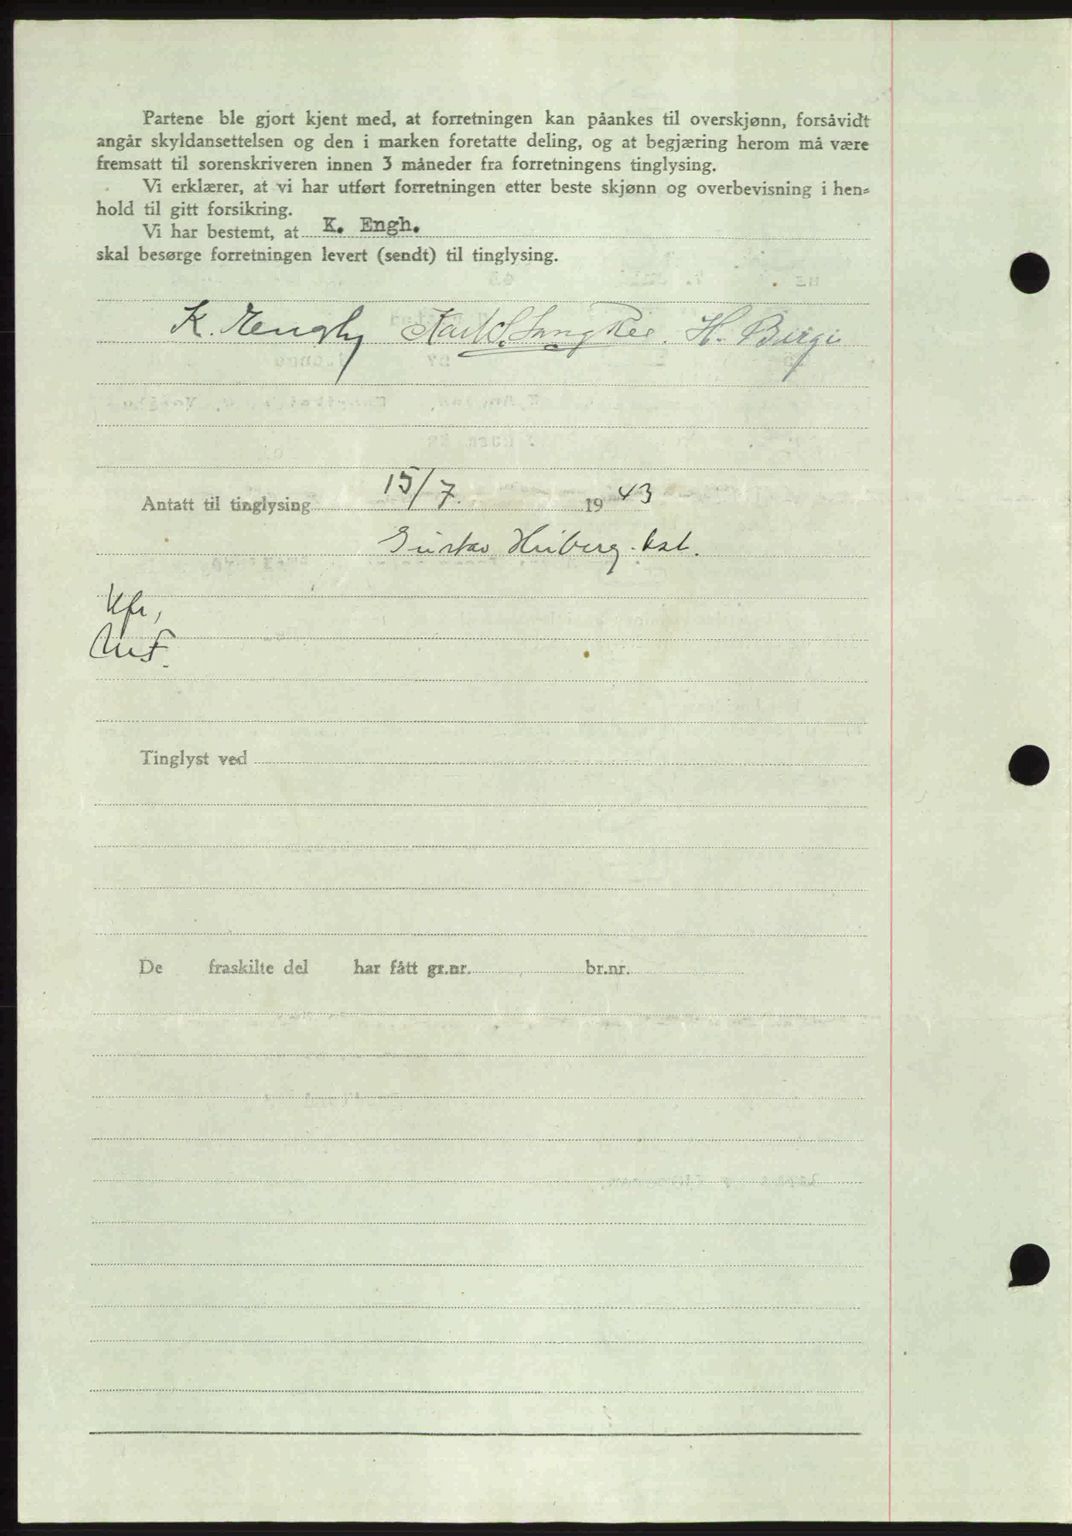 Partene ble gjort kjent med, at forretningen kan påankes til overskjønn, forsåvidt
angår skyldansettelsen og den i marken foretatte deling, og at begjæring herom må være
fremsatt til sorenskriveren innen 3 måneder fra forretningens tinglysing.
Vi erklærer, at vi har utført forretningen etter beste skjønn og overbevisning i hen=
hold til gitt forsikring.
Vi har bestemt, at K. Engh.
skal besørge forretningen levert (sendt) til tinglysing.
K. H.
Antatt til tinglysing 15/7. 19 43
Gustav Heiberg
Tinglyst ved
De fraskilte del har fått gr.nr. br.nr.